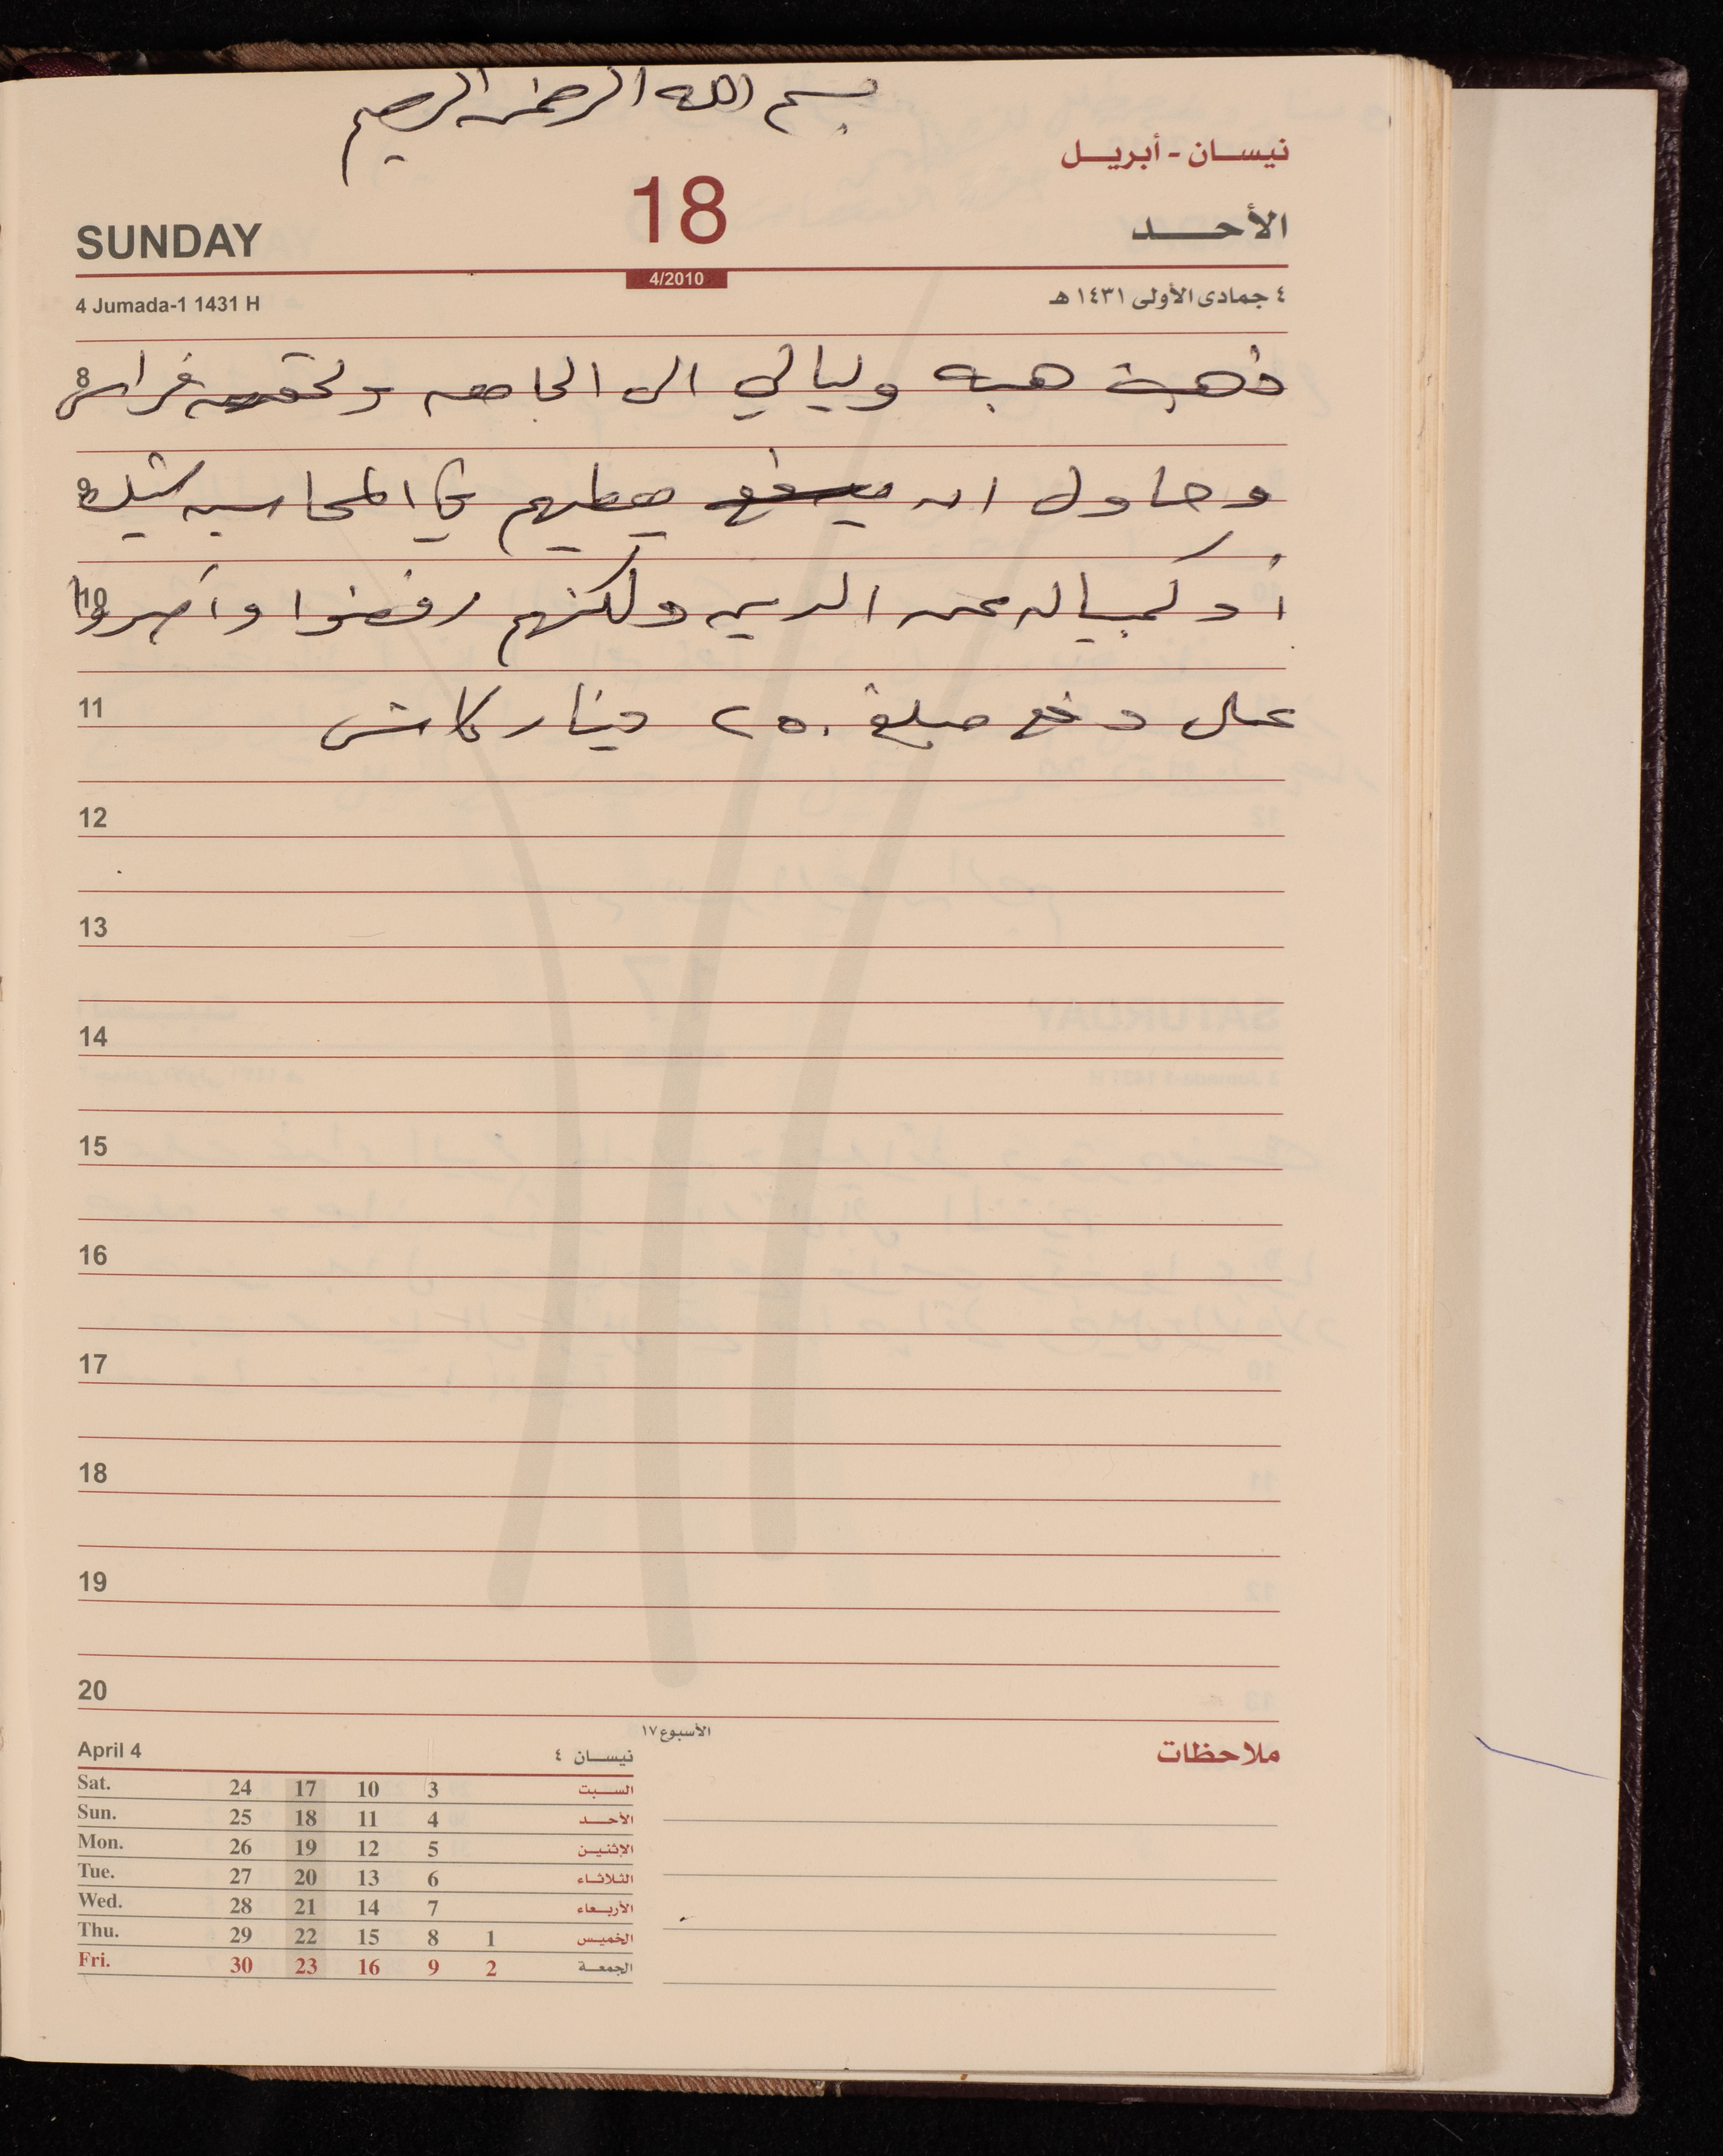 بسم الله الرحمن الرحيم
نيسان - أبريل
18
SUNDAY
الأحد
4/2010
4 Jumada-1 1431 H
٤ جمادى الأولى ١٤٣١ هـ
8 ذهبت هبه وليالي الى الجامعه ولحقهم فراس
9 وحاول ان يدفع يعطيهم في المحاسبه شيك
10 أو كمبياله عن الدين ولكنهم رفضوا وأصروا
11 على دفع مبلغ ٢٥٠ دينار كاش
12
13
14
15
16
17
18
19
20
الأسبوع ١٧
ملاحظات
April 4 نيسان ٤
Sat. 24 17 10 3 السبت
Sun. 25 18 11 4 الأحد
Mon. 26 19 12 5 الإثنين
Tue. 27 20 13 6 الثلاثاء
Wed. 28 21 14 7 الأربعاء
Thu. 29 22 15 8 1 الخميس
Fri. 30 23 16 9 2 الجمعة